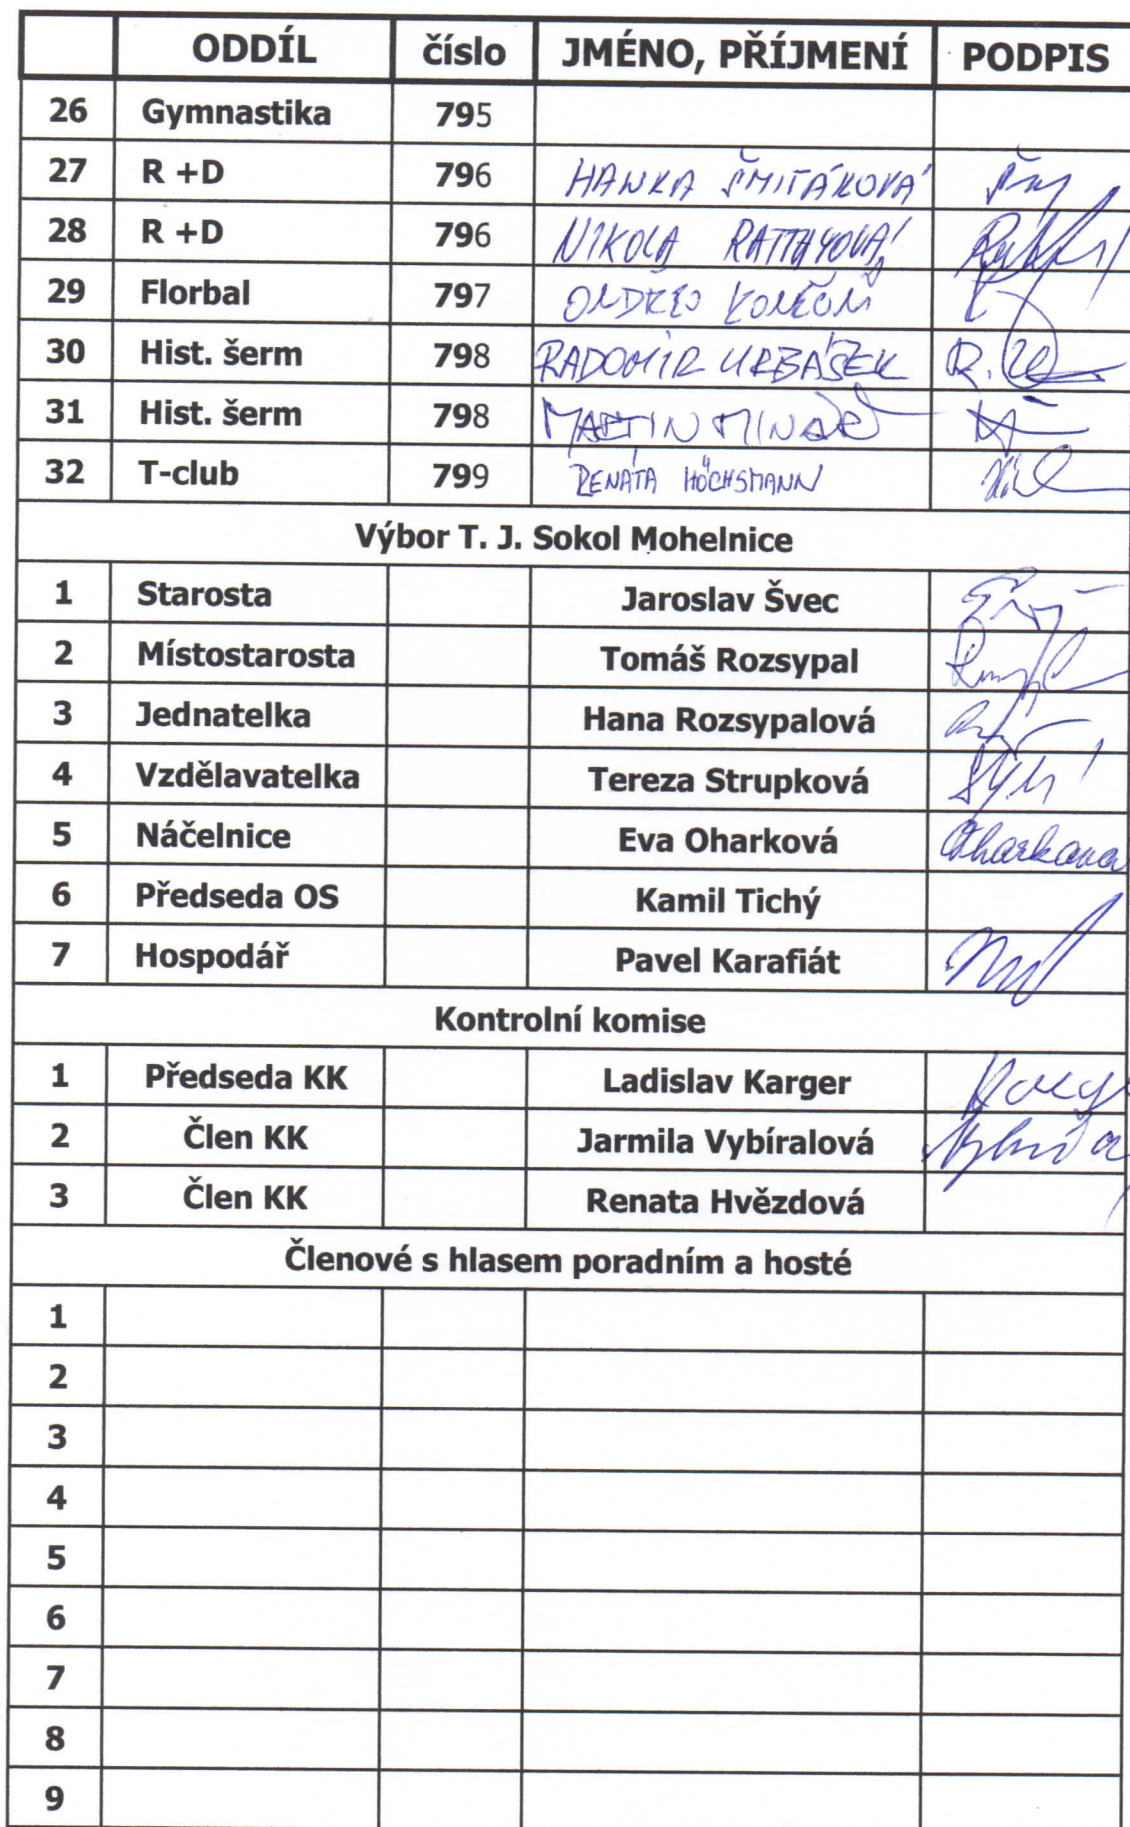 ODDÍL číslo JMÉNO, PŘÍJMENÍ PODPIS
26 Gymnastika 795
27 R +D 796 HANKA ŠMITÁKOVÁ
28 R +D 796 NIKOLA RATTAYOVÁ
29 Florbal 797 ONDŘEJ
30 Hist. šerm 798 RADOMÍR URBÁŠEK
31 Hist. šerm 798 MARTIN MINÁŘ
32 T-club 799 RENÁTA HÖCHSMANN
Výbor T. J. Sokol Mohelnice
1 Starosta Jaroslav Švec
2 Místostarosta Tomáš Rozsypal
3 Jednatelka Hana Rozsypalová
4 Vzdělavatelka Tereza Strupková
5 Náčelnice Eva Oharková Oharkova
6 Předseda OS Kamil Tichý
7 Hospodář Pavel Karafiát
Kontrolní komise
1 Předseda KK Ladislav Karger
2 Člen KK Jarmila Vybíralová
3 Člen KK Renata Hvězdová
Členové s hlasem poradním a hosté
1
2
3
4
5
6
7
8
9